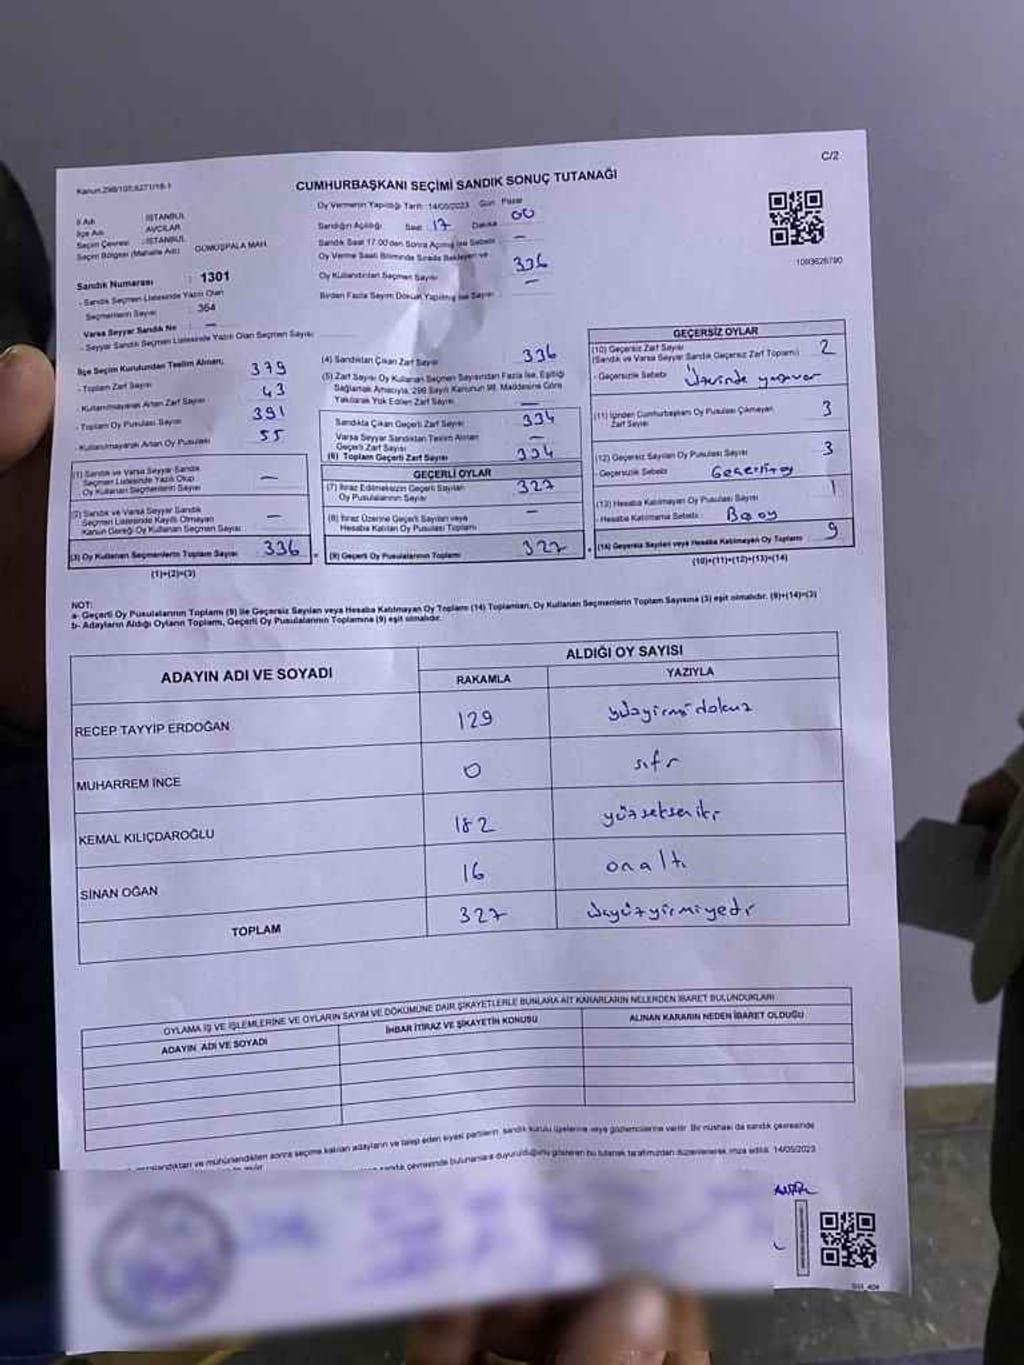 Kanun.298/105;6271/18-1
C/2
CUMHURBAŞKANI SEÇİMİ SANDIK SONUÇ TUTANAĞI
İl Adı : İSTANBUL
İlçe Adı : AVCILAR
Seçim Çevresi : İSTANBUL
Seçim Bölgesi (Mahalle Adı) : GÜMÜŞPALA MAH
Sandık Numarası : 1301
- Sandık Seçmen Listesinde Yazılı Olan
Seçmenlerin Sayısı : 364
Varsa Seyyar Sandık No : —
- Seyyar Sandık Seçmen Listesinde Yazılı Olan Seçmen Sayısı :
Oy Vermenin Yapıldığı Tarih :14/05/2023 Gün Pazar
Sandığın Açıldığı Saat : 17 Dakika 00
Sandık Saat 17.00'den Sonra Açılmış İse Sebebi : —
Oy Verme Saati Bitiminde Sırada Bekleyen ve
Oy Kullandırılan Seçmen Sayısı 336
Birden Fazla Sayım Döküm Yapılmış İse Sayısı : —
1093626790
İlçe Seçim Kurulundan Teslim Alınan;
- Toplam Zarf Sayısı 379
- Kullanılmayarak Artan Zarf Sayısı 43
- Toplam Oy Pusulası Sayısı 391
- Kullanılmayarak Artan Oy Pusulası 55
(1) Sandık ve Varsa Seyyar Sandık
Seçmen Listesinde Yazılı Olup
Oy Kullanan Seçmenlerin Sayısı —
(2) Sandık ve Varsa Seyyar Sandık
Seçmen Listesinde Kayıtlı Olmayan
Kanun Gereği Oy Kullanan Seçmen Sayısı —
(3) Oy Kullanan Seçmenlerin Toplam Sayısı 336
(1)+(2)=(3)
(4) Sandıktan Çıkan Zarf Sayısı 336
(5) Zarf Sayısı Oy Kullanan Seçmen Sayısından Fazla İse, Eşitliği
Sağlamak Amacıyla, 298 Sayılı Kanunun 98. Maddesine Göre
Yakılarak Yok Edilen Zarf Sayısı —
Sandıkta Çıkan Geçerli Zarf Sayısı 334
Varsa Seyyar Sandıktan Teslim Alınan
Geçerli Zarf Sayısı —
(6) Toplam Geçerli Zarf Sayısı 334
GEÇERLİ OYLAR
(7) İtiraz Edilmeksizin Geçerli Sayılan
Oy Pusulalarının Sayısı 327
(8) İtiraz Üzerine Geçerli Sayılan veya
Hesaba Katılan Oy Pusulası Toplamı —
(9) Geçerli Oy Pusulalarının Toplamı 327
GEÇERSİZ OYLAR
(10) Geçersiz Zarf Sayısı
(Sandık ve Varsa Seyyar Sandık Geçersiz Zarf Toplamı) 2
- Geçersizlik Sebebi Üzerinde yazıvar
(11) İçinden Cumhurbaşkanı Oy Pusulası Çıkmayan
Zarf Sayısı 3
(12) Geçersiz Sayılan Oy Pusulası Sayısı 3
- Geçersizlik Sebebi
(13) Hesaba Katılmayan Oy Pusulası Sayısı 1
- Hesaba Katılmama Sebebi :
(14) Geçersiz Sayılan veya Hesaba Katılmayan Oy Toplamı 9
(10)+(11)+(12)+(13)=(14)
NOT:
a- Geçerli Oy Pusulalarının Toplamı (9) ile Geçersiz Sayılan veya Hesaba Katılmayan Oy Toplamı (14) Toplamları, Oy Kullanan Seçmenlerin Toplam Sayısına (3) eşit olmalıdır. (9)+(14)=(3)
b- Adayların Aldığı Oyların Toplamı, Geçerli Oy Pusulalarının Toplamına (9) eşit olmalıdır.
ADAYIN ADI VE SOYADI
ALDIĞI OY SAYISI
RAKAMLA YAZIYLA
RECEP TAYYİP ERDOĞAN 129 yüzyirmidokuz
MUHARREM İNCE 0 sıfır
KEMAL KILIÇDAROĞLU 182 yüzseksen iki
SİNAN OĞAN 16 onaltı
TOPLAM 327 üçyüzyirmiyedi
OYLAMA İŞ VE İŞLEMLERİNE VE OYLARIN SAYIM VE DÖKÜMÜNE DAİR ŞİKAYETLERLE BUNLARA AİT KARARLARIN NELERDEN İBARET BULUNDUKLARI
ADAYIN ADI VE SOYADI İHBAR İTİRAZ VE ŞİKAYETİN KONUSU ALINAN KARARIN NEDEN İBARET OLDUĞU
ve mühürlendikten sonra seçime katılan adayların ve talep eden siyasi partilerin sandık kurulu üyelerine veya gözlemcilerine verilir. Bir nüshası da sandık çevresinde
sandık çevresinde bulunanlara duyurulduğunu gösteren bu tutanak tarafımızdan düzenlenerek imza edildi. 14/05/2023